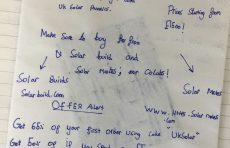 UK Solar Powers.
Prices starting from
£1500!
Make Sure to buy the from
Solar builds and
Solar Mates; our Collabs!
Solar Builds
Solarbuild.com
Solar Mates
www.HMS-Solar mates
.com
OFFER Alert
Get 65% of your first order using code "UkSolar"
Get 60% of if you